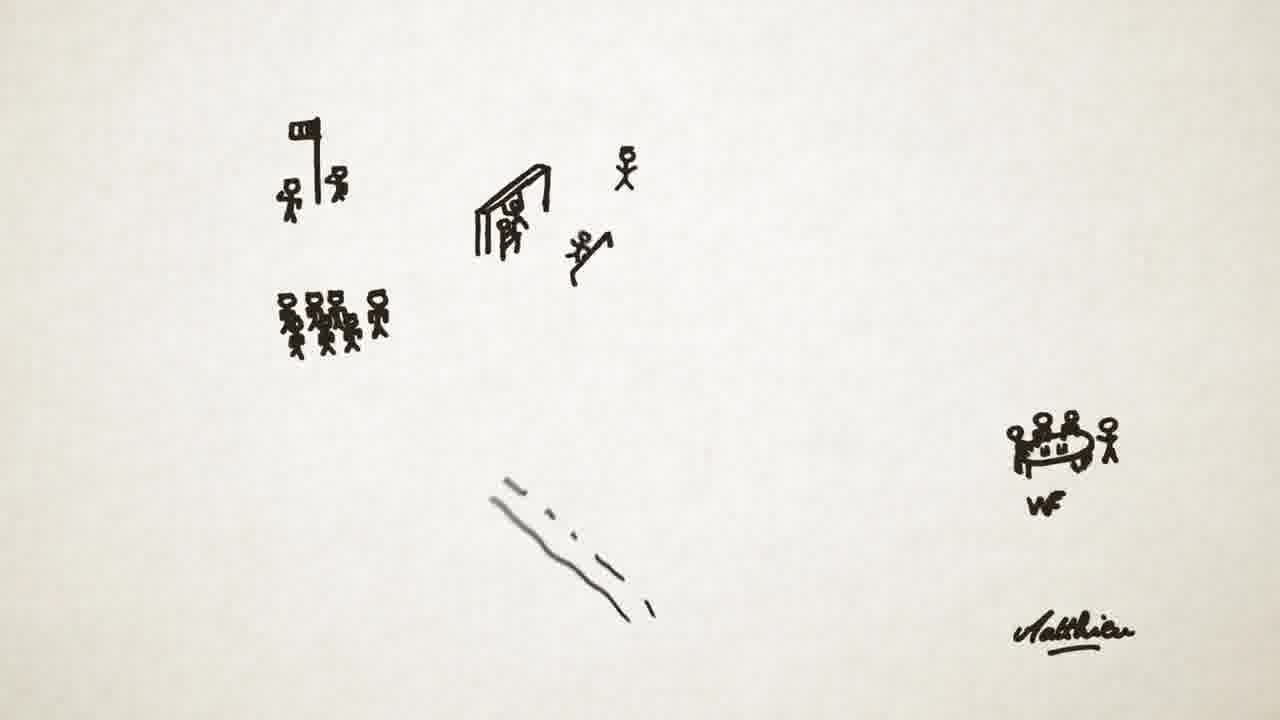 WF
Matthieu